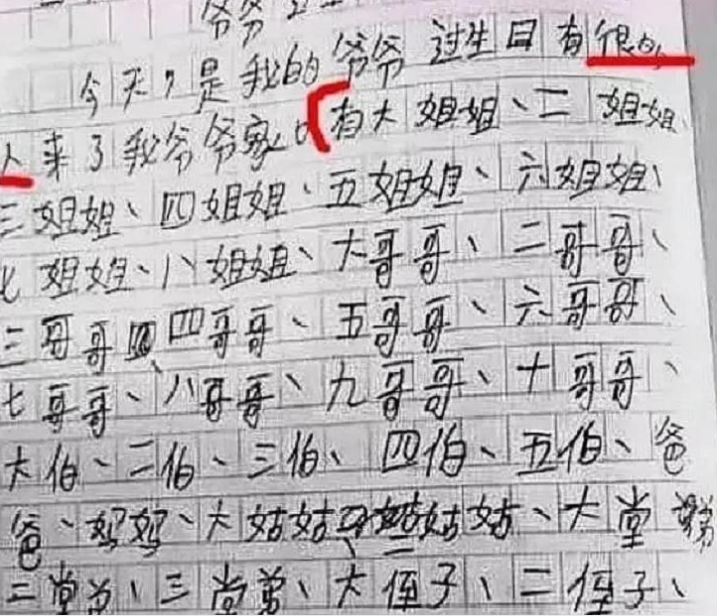 爷爷
今天,是我的爷爷过生日有很多
人来了我爷爷家。有大姐姐、二姐姐、
三姐姐、四姐姐、五姐姐、六姐姐、
七姐姐、八姐姐、大哥哥、二哥哥、
三哥哥、四哥哥、五哥哥、六哥哥、
七哥哥、八哥哥、九哥哥、十哥哥、
大伯、二伯、三伯、四伯、五伯、爸
爸、妈妈、大姑姑、二姑姑、大堂弟
二堂弟、三堂弟、大侄子、二侄子、